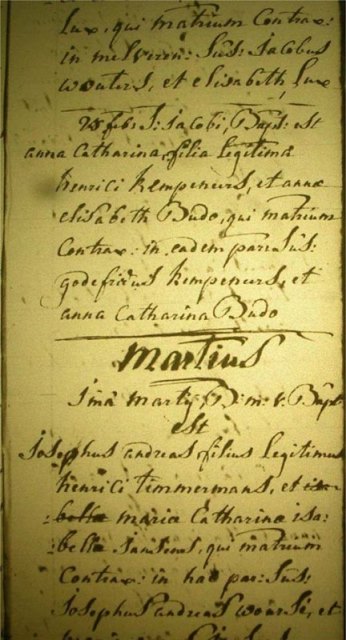 Lux, qui matrium Contrax:
in melveren: Sus: Jacobus
wouters, et elisabeth Lux
25 febr: S: Jacobi, Bapt: est
anna Catharina, filia Legitima
henrici Kempeneurs, et annæ
elisabeth Budo, qui matrium
Contrax: in eadem par: Sus:
godefridus Kempeneurs, et
anna Catharina Budo
Martius
martij B: m: v: Bapt
est
Josephus andreas filius Legitimus
henrici Timmermans, et isa-
bella maria Catharina isa:
bella Jansens, qui matrium
Contrax: in hac par: Sus:
Josephus andreas et